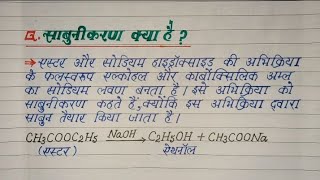 Q. साबुनीकरण क्या है ?
⇒ एस्टर और सोडियम हाइड्रॉक्साइड की अभिक्रिया
के फलस्वरूप एल्कोहल और कार्बोक्सिलिक अम्ल
का सोडियम लवण बनता है। इसे अभिक्रिया को
साबुनीकरण कहते हैं, क्योंकि इस अभिक्रिया द्वारा
साबुन तैयार किया जाता है।
CH₃COOC₂H₅ —NaOH→ C₂H₅OH + CH₃COONa
(एस्टर) ऐथनॉल